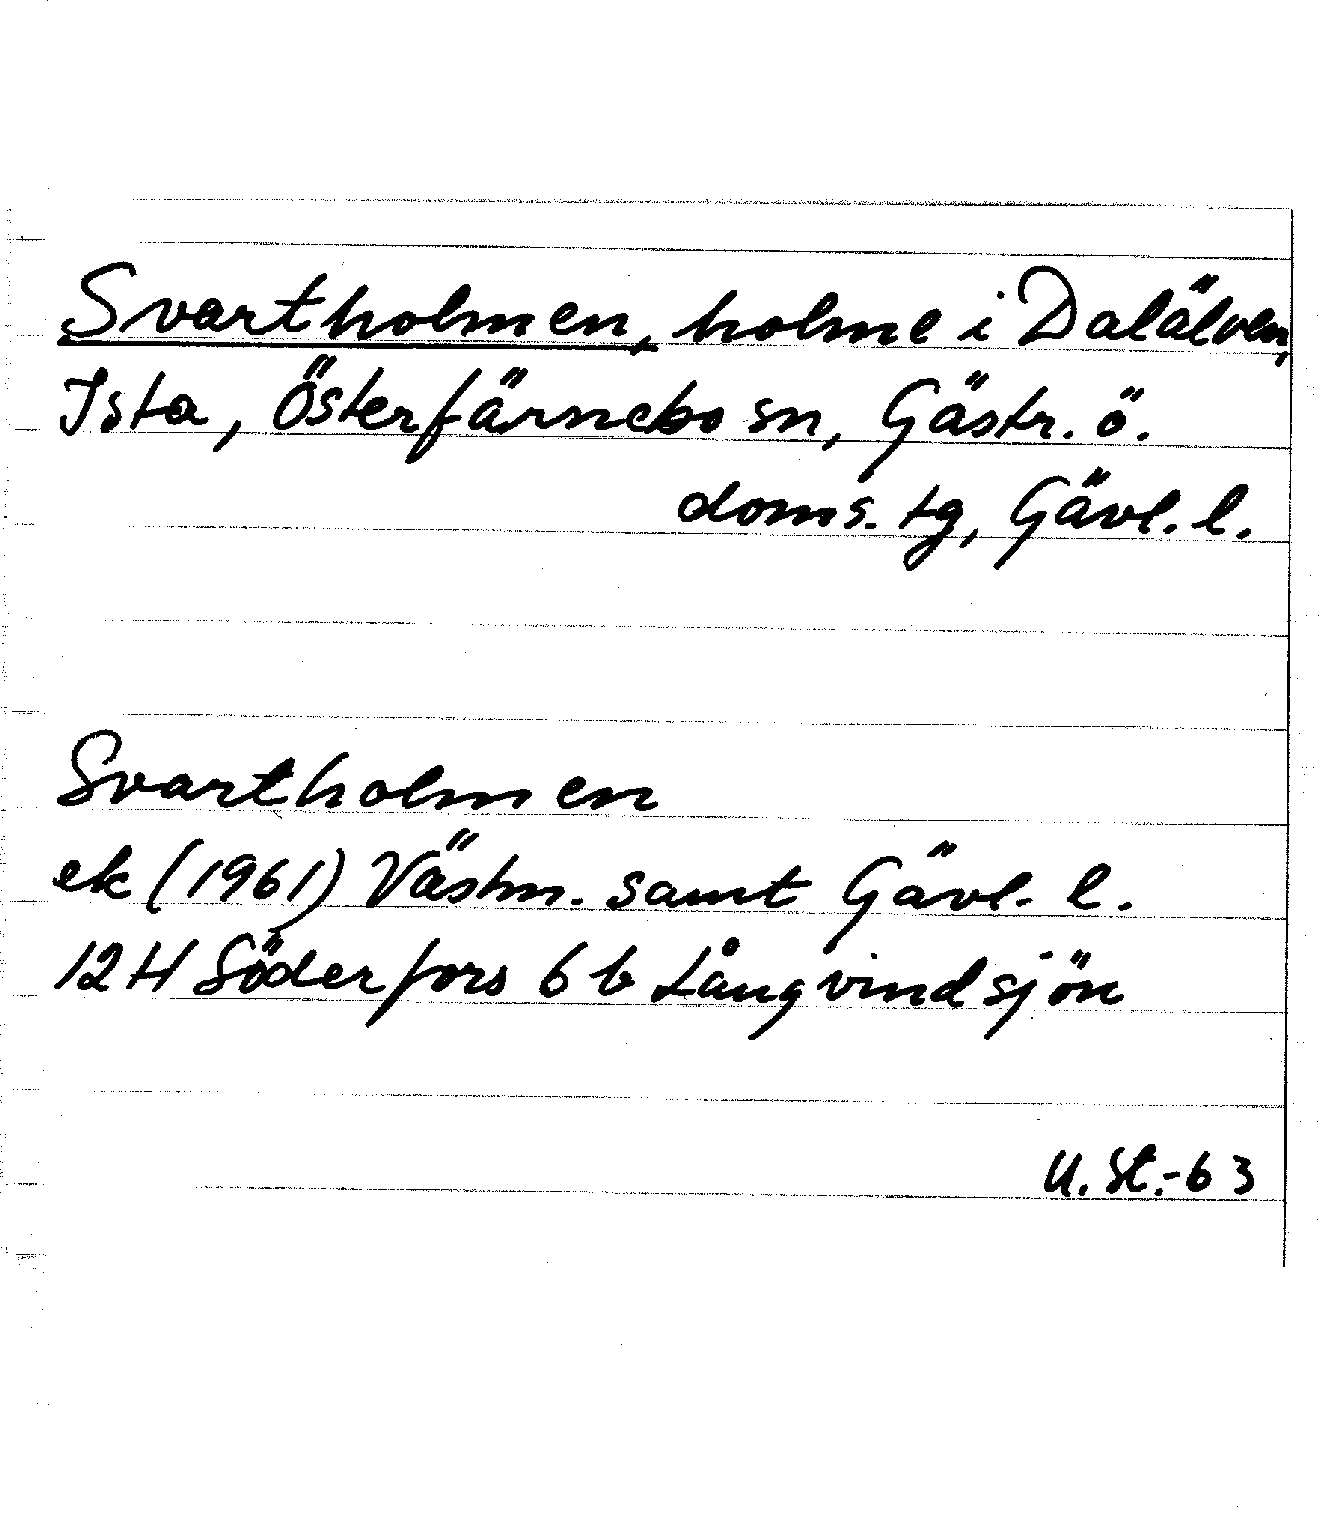 Svartholmen, holme i Dalälven,
Ista, Österfärnebo sn, Gästr. ö.
doms. tg, Gävl. l.
Svartholmen
ek (1961) Västm. samt Gävl. l.
12 H Söderfors 6 b Långvindsjön
U. St.-63